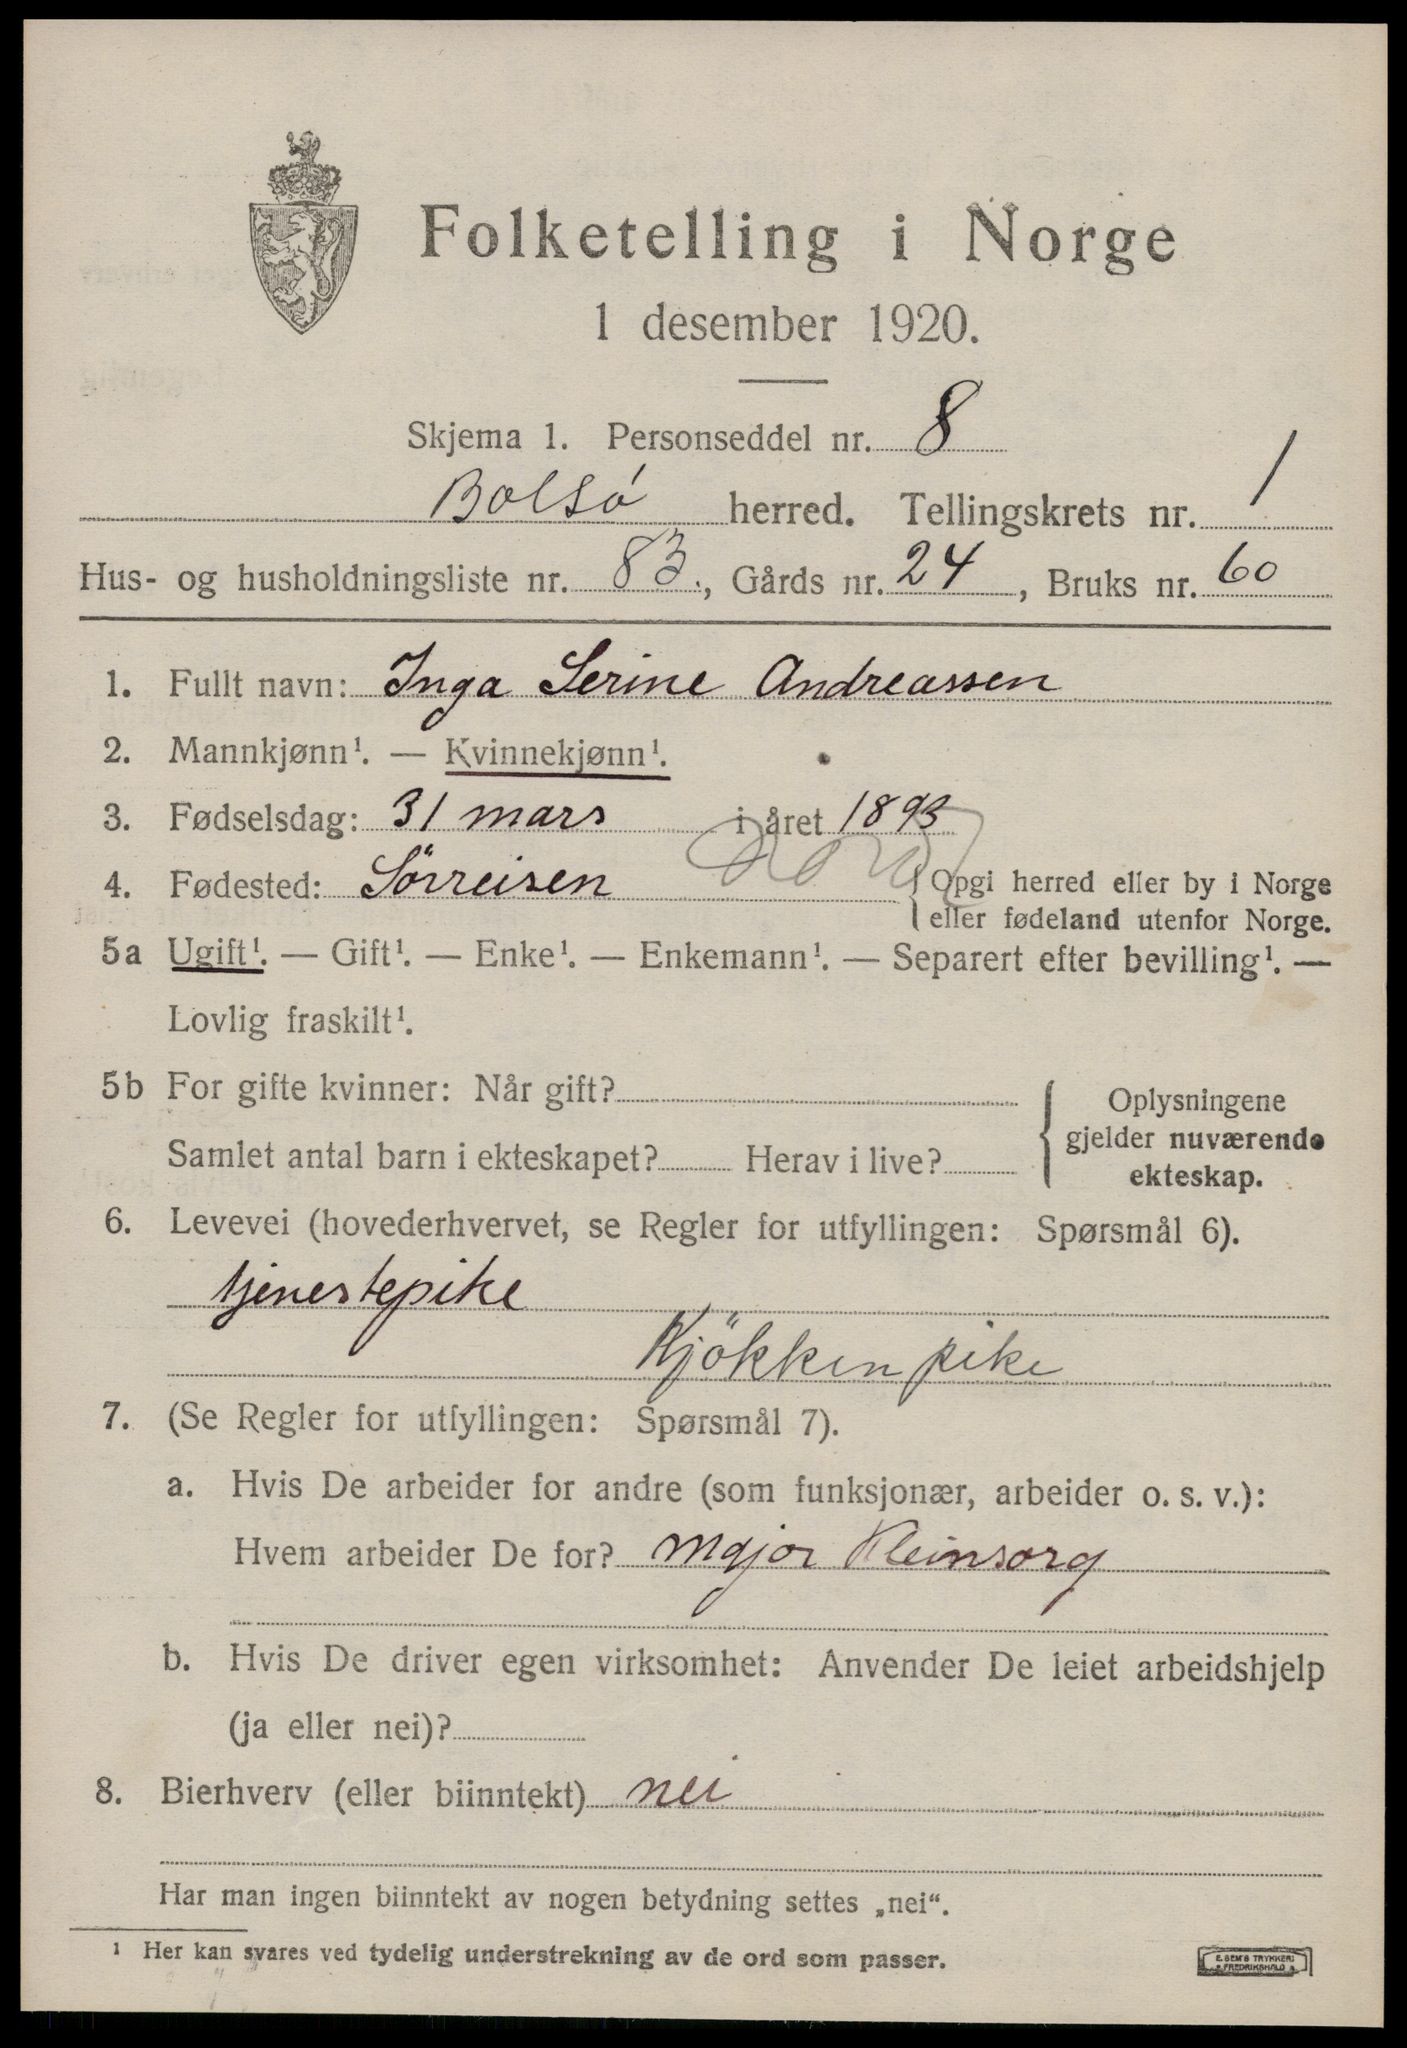 Folketelling i Norge
1 desember 1920.
Skjema 1. Personseddel nr. 8
Bolsø herred. Tellingskrets nr. 1
Hus- og husholdningsliste nr. 83., Gårds nr. 24, Bruks nr. 60
1. Fullt navn: Inga Serine Andreassen
2. Mannkjønn¹. — Kvinnekjønn¹.
3. Fødselsdag: 31 mars i året 1893
4. Fødested: Sörreisen {Opgi herred eller by i Norge
eller fødeland utenfor Norge.
5a Ugift¹. — Gift¹. — Enke¹. — Enkemann¹. — Separert efter bevilling¹. —
Lovlig fraskilt¹.
5b For gifte kvinner: Når gift?
Samlet antal barn i ekteskapet? Herav i live?
Oplysningene
gjelder nuværende
ekteskap.
6. Levevei (hovederhvervet, se Regler for utfyllingen: Spørsmål 6).
tjenestepike
Kjökkenpike
7. (Se Regler for utfyllingen: Spørsmål 7).
a. Hvis De arbeider for andre (som funksjonær, arbeider o. s. v.):
Hvem arbeider De for? Major Kleinsorg
b. Hvis De driver egen virksomhet: Anvender De leiet arbeidshjelp
(ja eller nei)?
8. Bierhverv (eller biinntekt) nei
Har man ingen biinntekt av nogen betydning settes „nei".
¹ Her kan svares ved tydelig understrekning av de ord som passer.
E. SEM'S TRYKKERI
FREDRIKSHALD